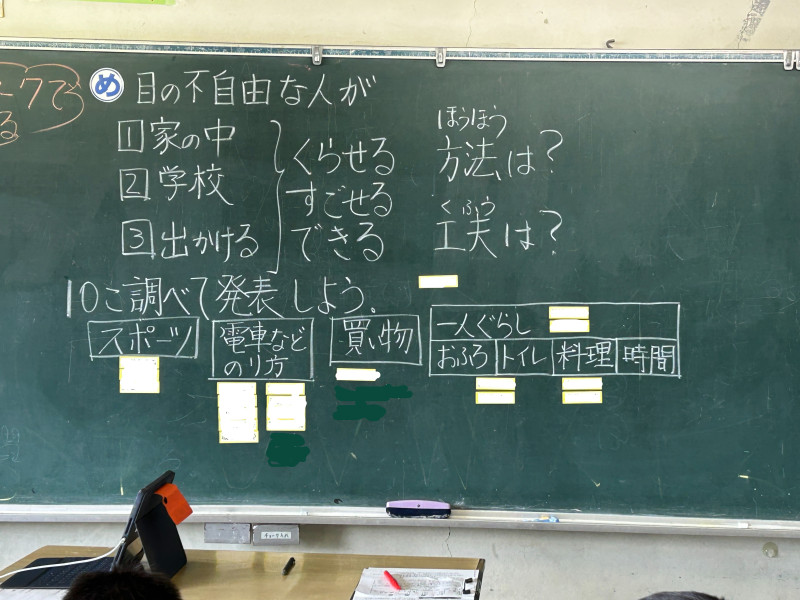 ークで
る
め 目の不自由な人が
1 家の中
2 学校
3 出かける
くらせる
すごせる
できる
ほうほう
方法は?
くふう
工夫は?
10こ調べて発表しよう。
スポーツ
電車など
のり方
買い物
一人ぐらし
おふろ トイレ 料理 時間